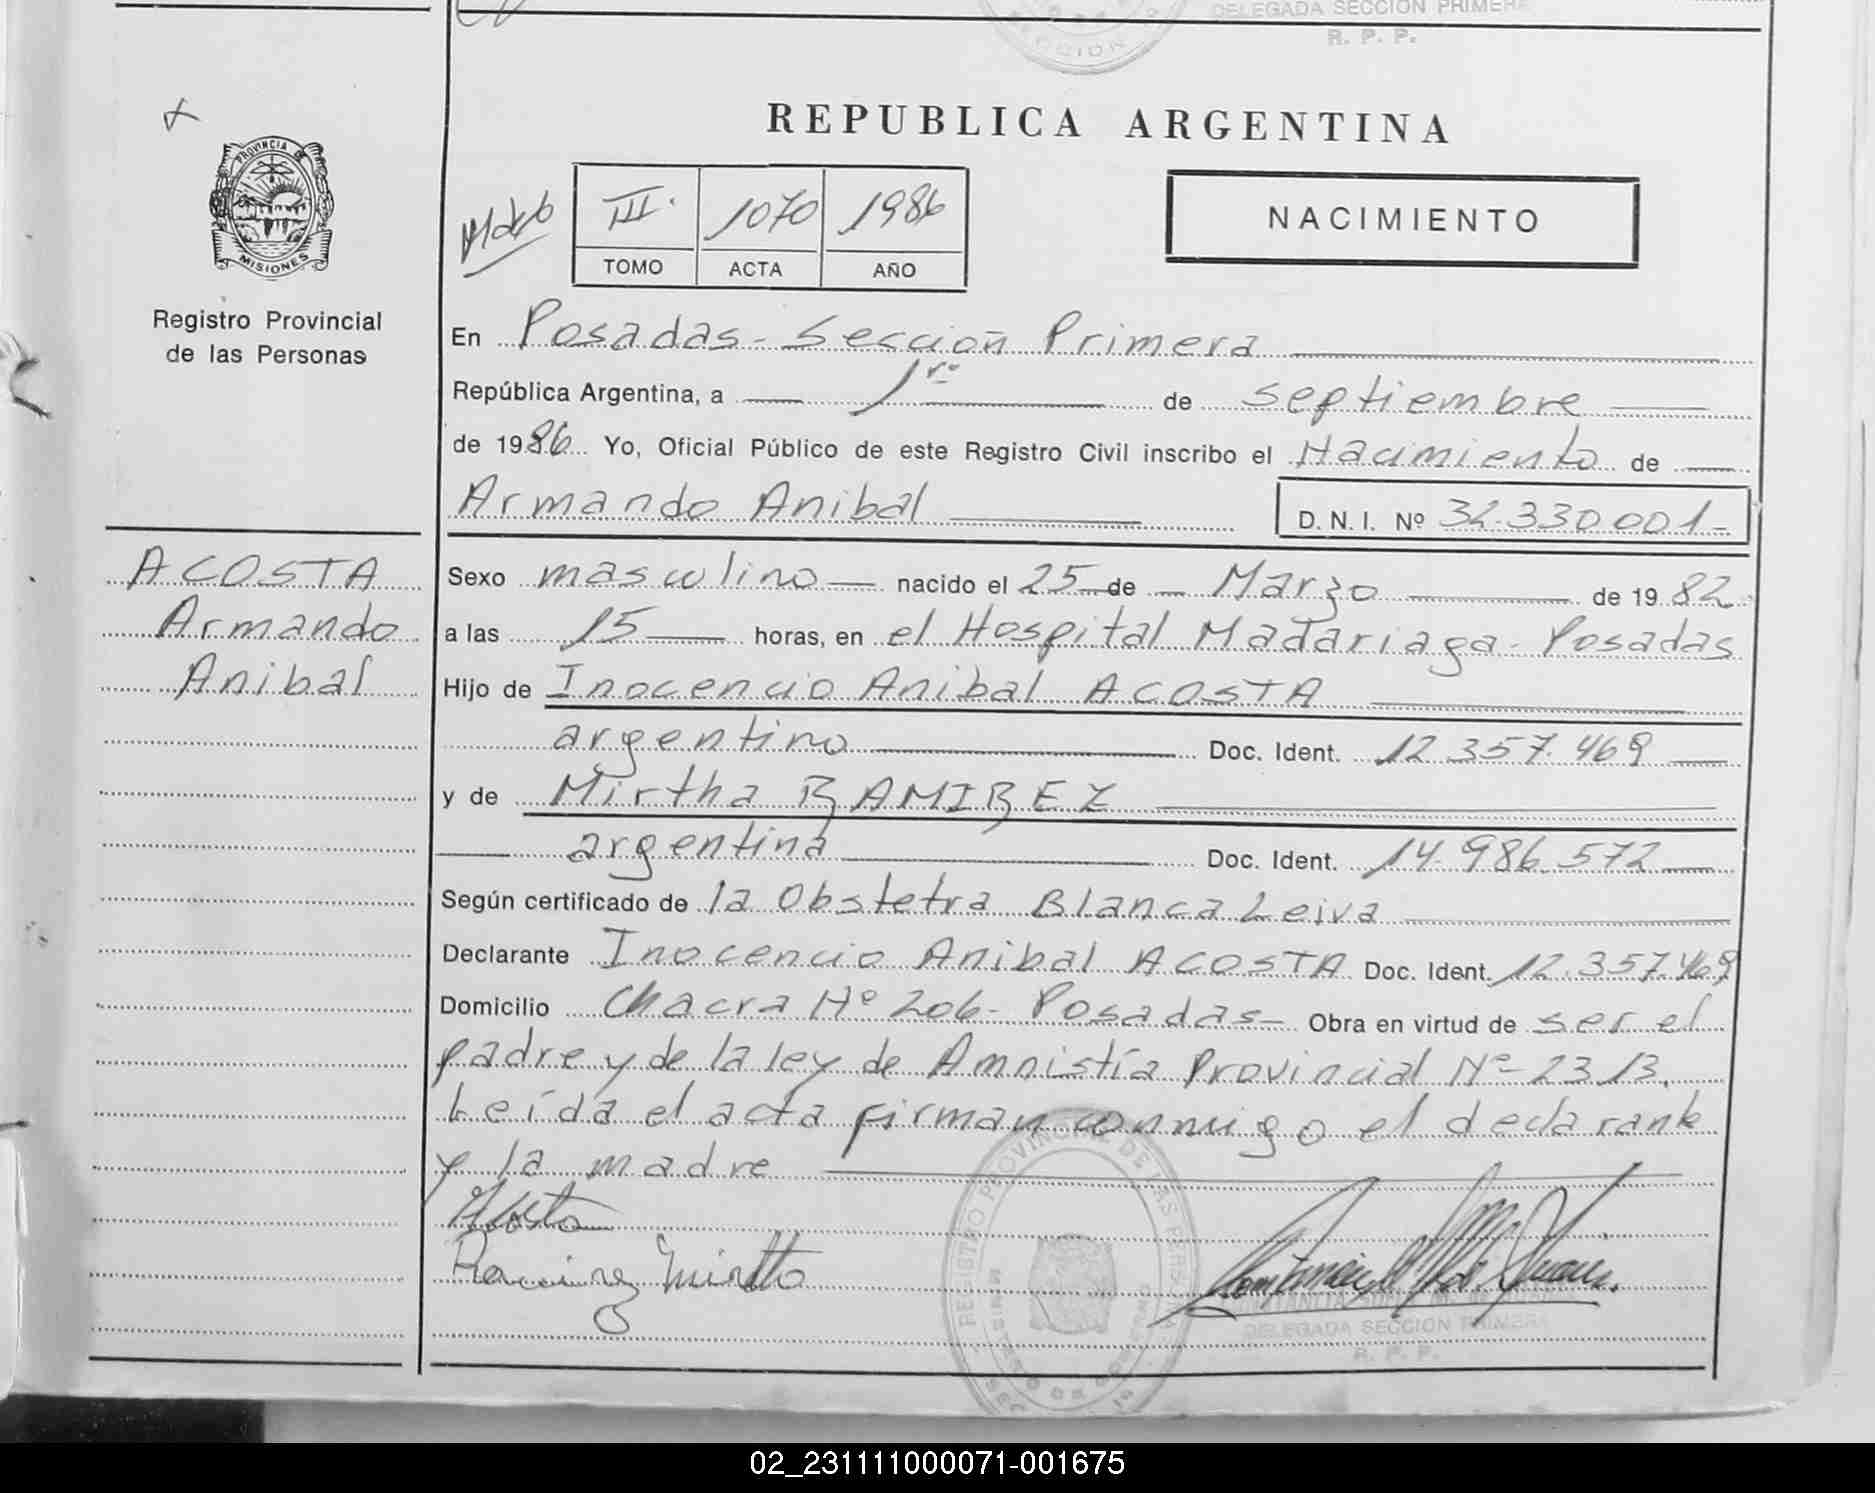 DELEGADA SECCION PRIMERA
R. P. P.
SECCION
REPUBLICA ARGENTINA
PROVINCIA DE
MISIONES
Registro Provincial
de las Personas
III. 1070 1986
TOMO ACTA AÑO
NACIMIENTO
En Posadas - Sección Primera
República Argentina, a 1ro de septiembre
de 1986 Yo, Oficial Público de este Registro Civil inscribo el Nacimiento de
Armando Anibal D.N.I. Nº 32.330.001-
ACOSTA
Armando
Anibal
Sexo masculino nacido el 25 de Marzo de 1982
a las 15 horas, en el Hospital Madariaga - Posadas
Hijo de Inocencio Anibal ACOSTA
argentino Doc. Ident. 12.357.469
y de Mirtha RAMIREZ
argentina Doc. Ident. 14.986.572
Según certificado de la Obstetra Blanca Leiva
Declarante Inocencio Anibal ACOSTA Doc. Ident. 12.357.469
Domicilio Chacra Nº 206 - Posadas - Obra en virtud de ser el
padre y de la ley de Amnistía Provincial Nº 2313.
Leída el acta firman conmigo el declarante
y la madre
Acosta
Ramirez Mirtha
REGISTRO PROVINCIAL DE LAS PERS
DELEGADA SECCION PRIMERA
R. P. P.
02_231111000071-001675